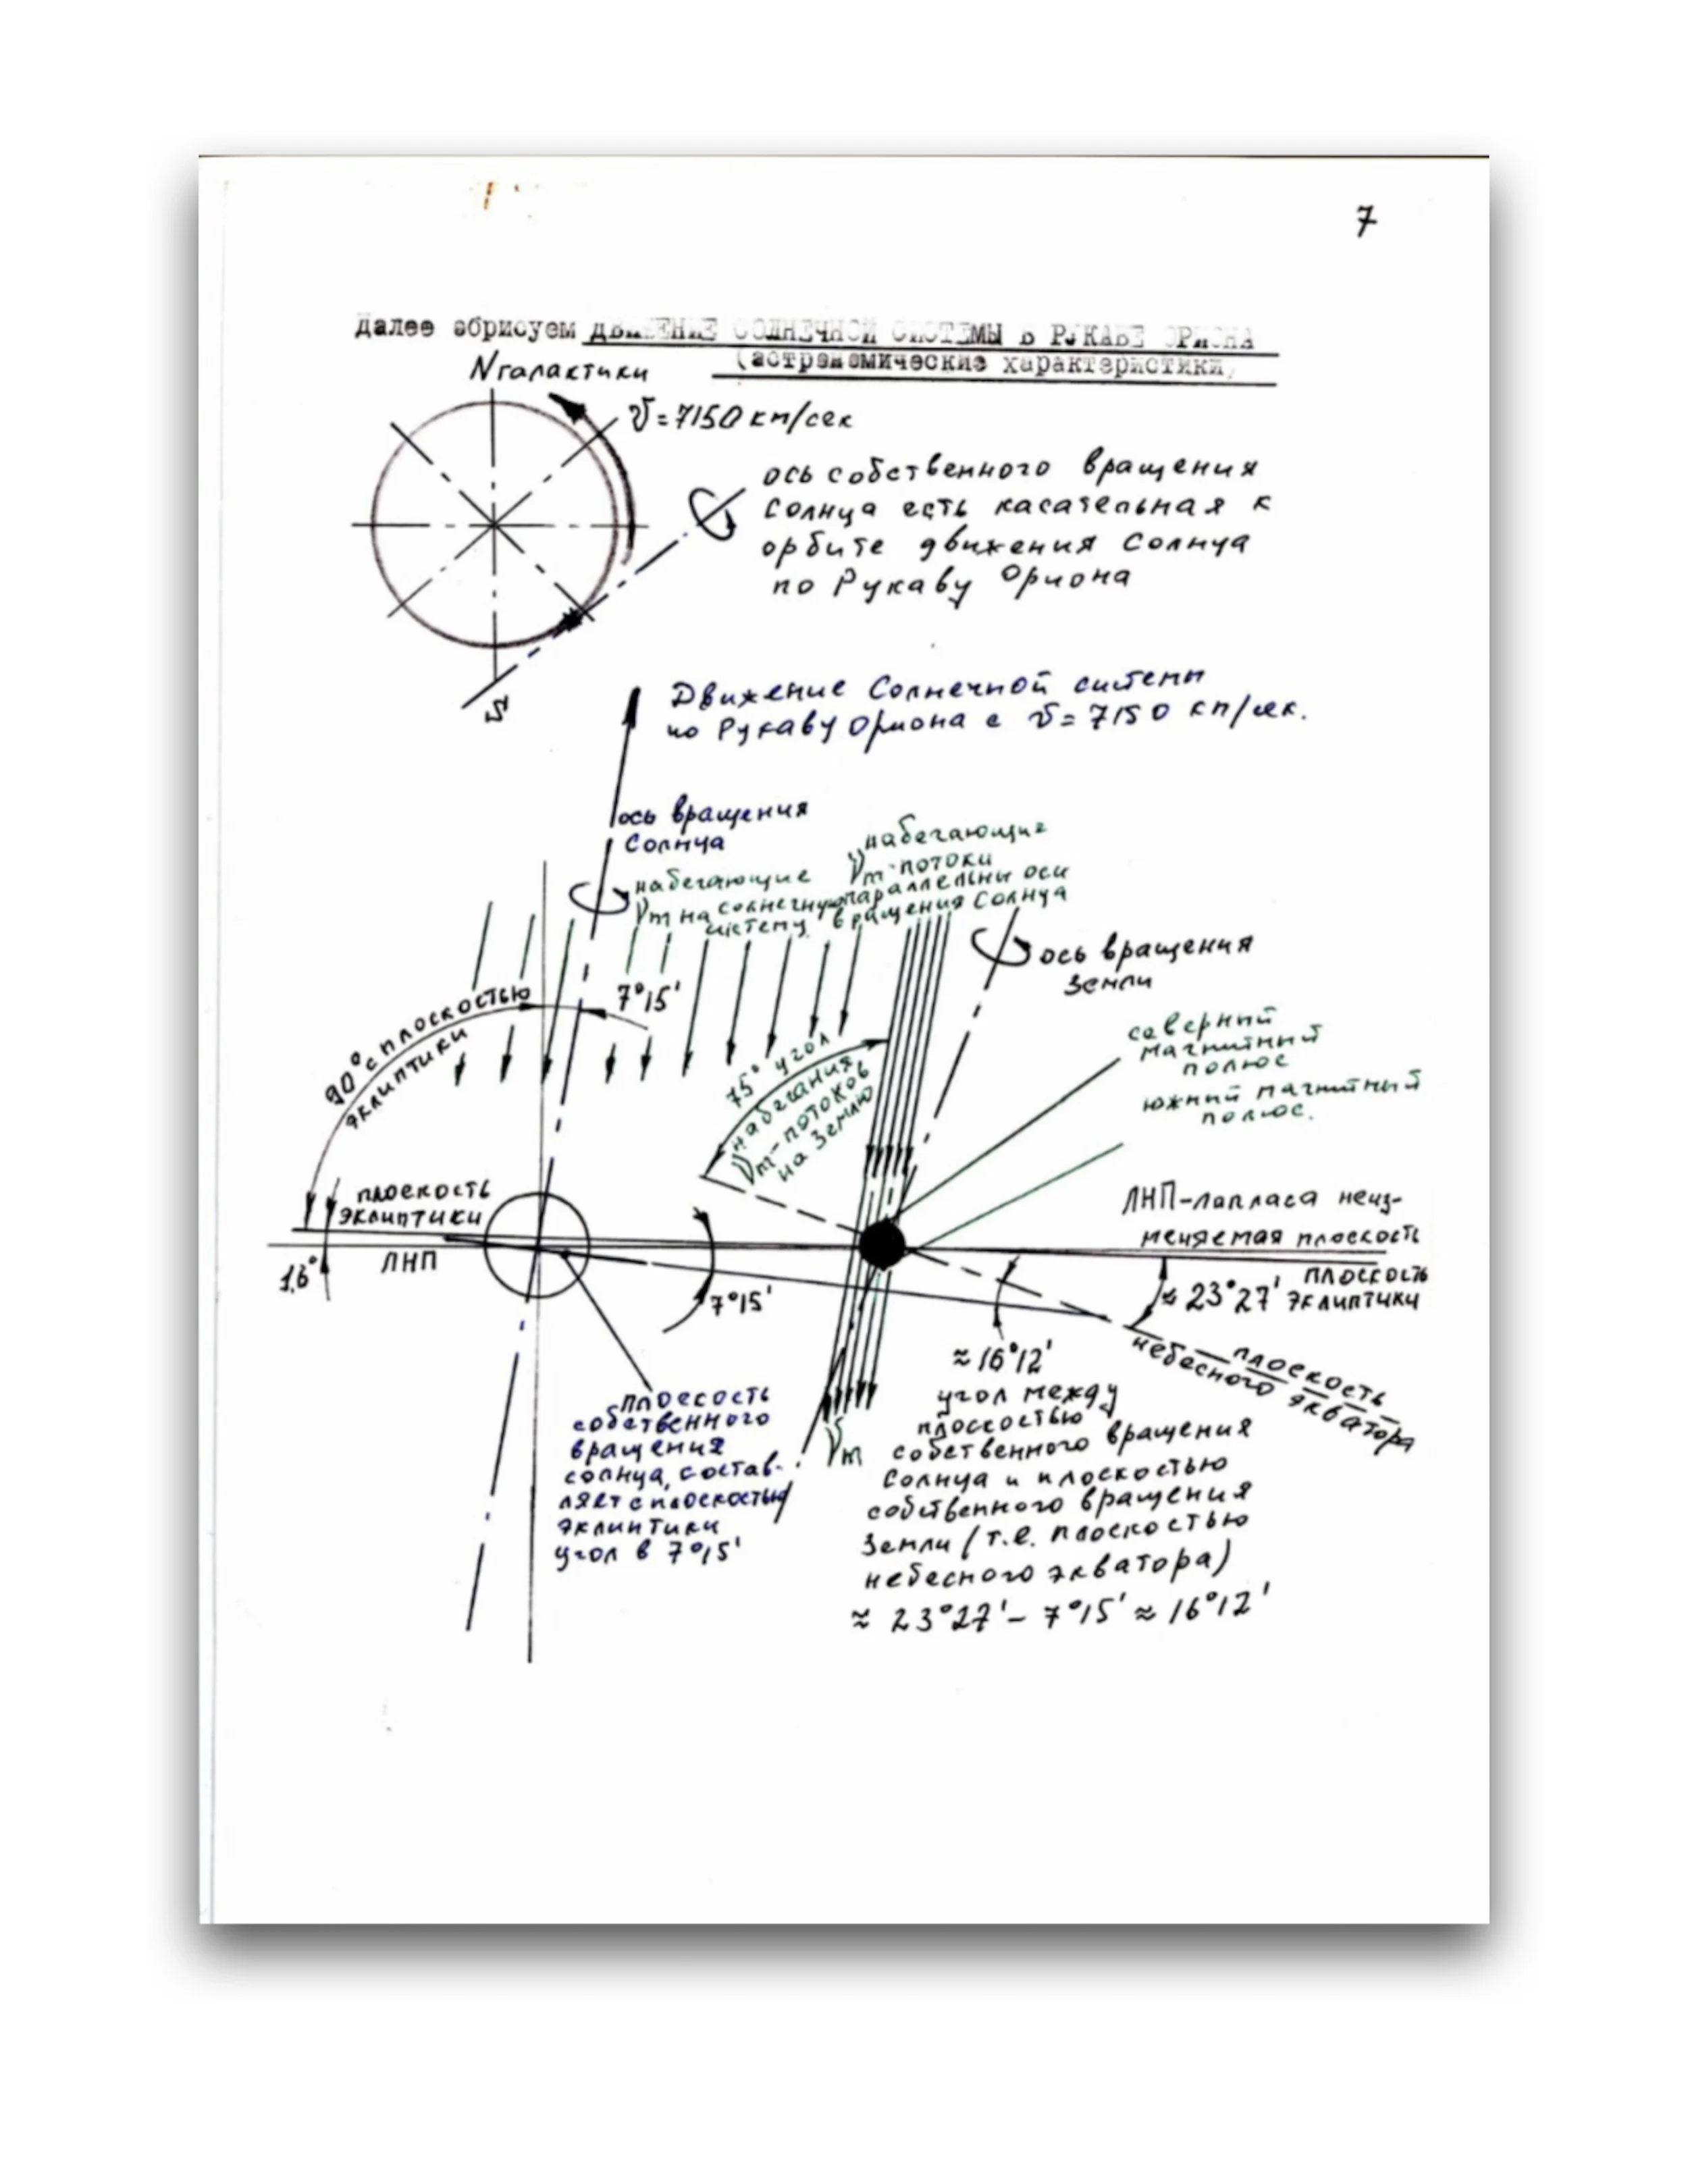 7
Далее обрисуем ДВИЖЕНИЕ СОЛНЕЧНОЙ СИСТЕМЫ В РУКАВЕ ОРИОНА
(астрономические характеристики)
N галактики
V = 7150 км/сек
ось собственного вращения
Солнца есть касательная к
орбите движения Солнца
по Рукаву Ориона
S
Движение Солнечной системы
по Рукаву Ориона с V = 7150 км/сек.
ось вращения
Солнца
набегающие
γm на солнечную
систему
набегающие
γm-потоки
параллельны оси
вращения Солнца
ось вращения
Земли
7°15'
90° с плоскостью
эклиптики
75° угол
набегания
γm-потоков
на Землю
северный
магнитный
полюс
южный магнитный
полюс.
плоскость
эклиптики
ЛНП
1,6°
ЛНП-Лапласа неиз-
меняемая плоскость
плоскость
эклиптики
≈ 23°27'
7°15'
плоскость
небесного экватора
≈ 16°12'
угол между
плоскостью
собственного вращения
Солнца и плоскостью
собственного вращения
Земли (т.е. плоскостью
небесного экватора)
≈ 23°27' – 7°15' ≈ 16°12'
γm
плоскость
собственного
вращения
солнца, состав-
ляет с плоскостью
эклиптики
угол в 7°15'